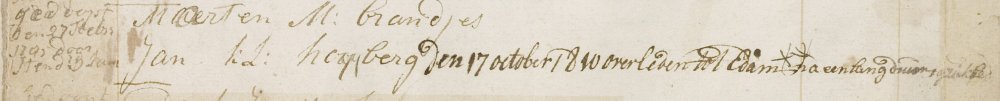 gedoopt
den 27 Febr
1791 door
Maerten M: brandjes
Jan k:l: hopberg den 17 october 1810 overleden tot Edam na een lang duurig ziekte